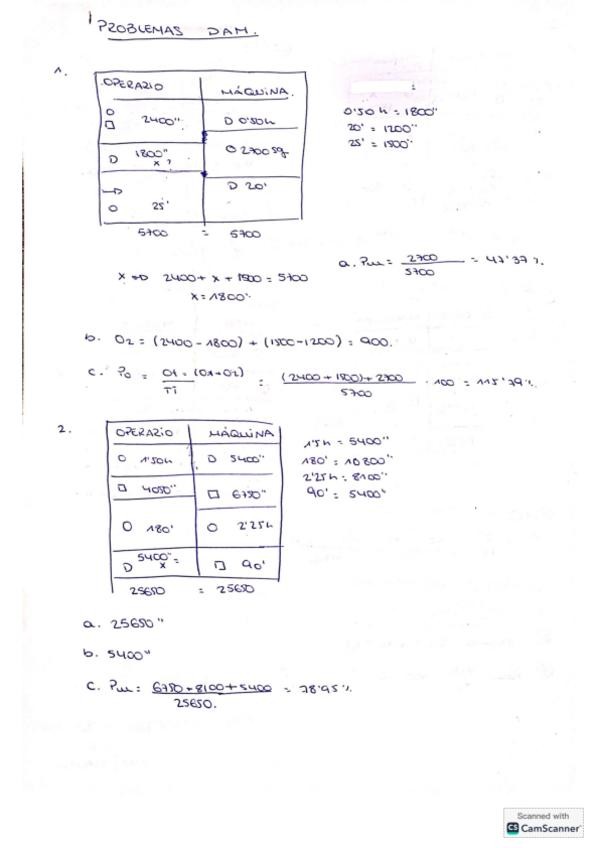 PROBLEMAS DAM.
1.
OPERARIO MÁQUINA.
2400" D 0'50h
D 1800" x? O 2700sg
D 20'
O 25'
5700 = 5700
:
0'50 h = 1800"
20' = 1200"
25' = 1500"
x => 2400 + x + 1500 = 5700
x = 1800"
a. Pm = 2700 / 5700 = 47'37 %.
b. O2 = (2400 - 1800) + (1500 - 1200) = 900.
c. Po = O1 = (O1+O2) / Ti = (2400 + 1500) + 2700 / 5700 · 100 = 115'79 %
2.
OPERARIO MÁQUINA
O 1'50h D 5400"
□ 4050" □ 6750"
O 180' O 2'25h
D 5400" = x □ 90'
25650 = 25650
1'5h = 5400"
180' = 10800"
2'25h = 8100"
90' = 5400"
a. 25650"
b. 5400"
c. Pm = 6750 + 8100 + 5400 / 25650. = 78'95 %.
Scanned with
CS CamScanner